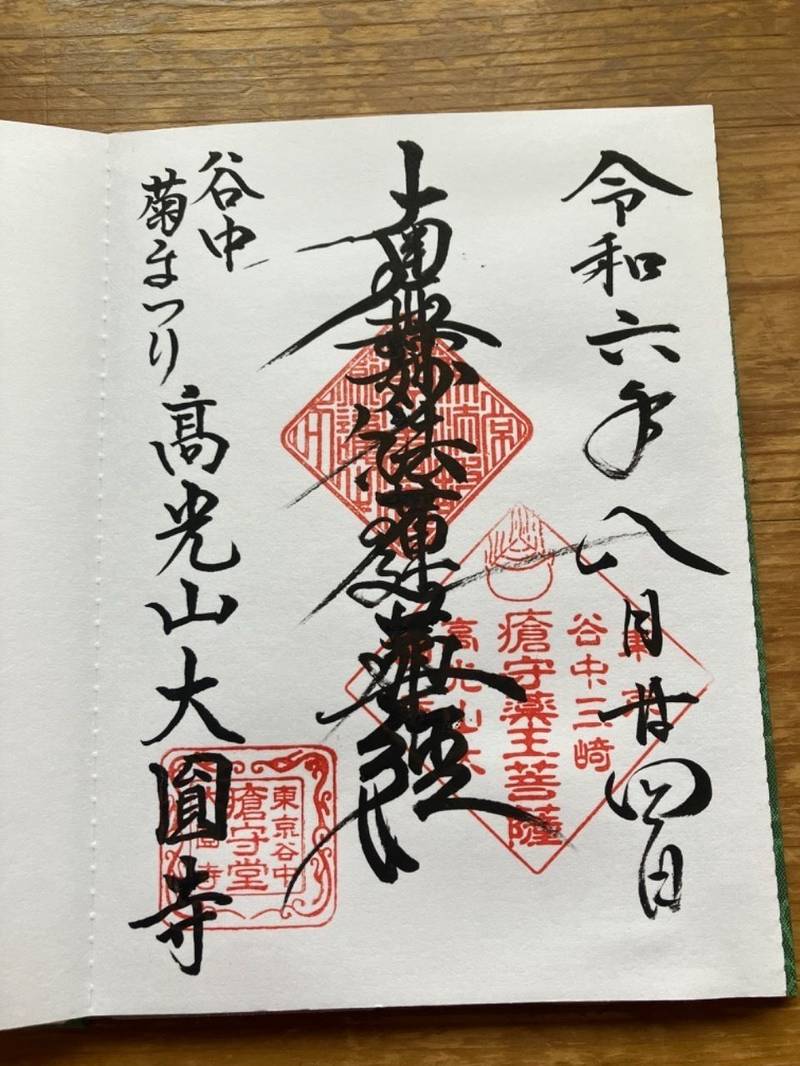 令和六年八月廿四日
南無妙法蓮華経
谷中
菊まつり
高光山大圓寺
谷中三崎
瘡守薬王菩薩
高光山大
東京谷中
瘡守堂